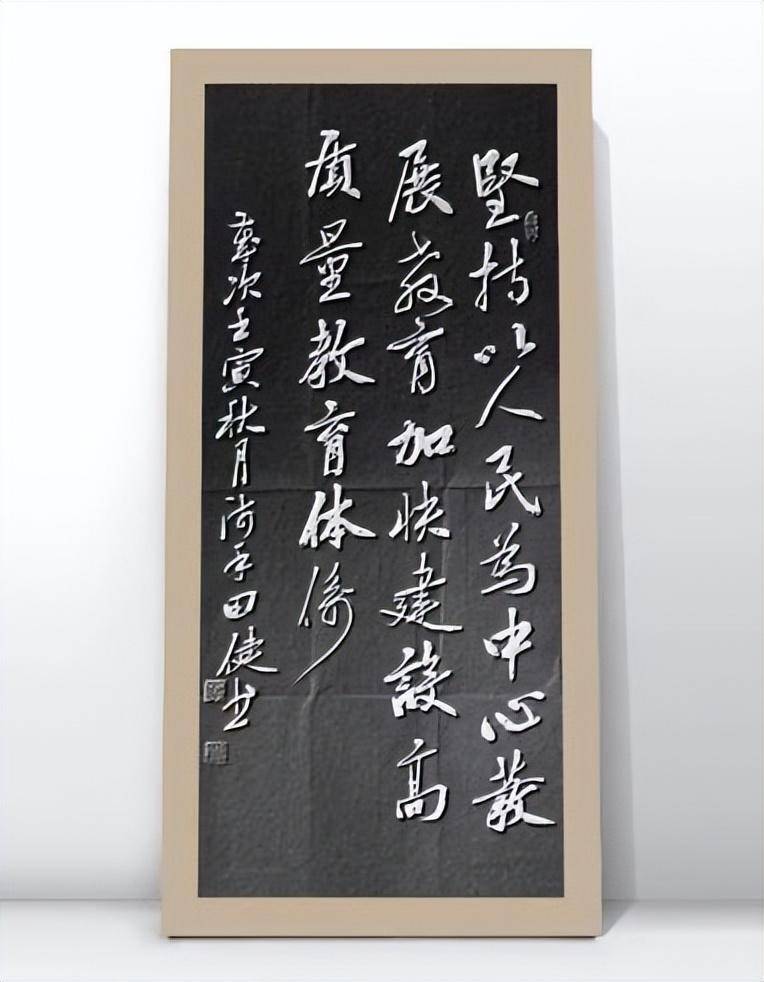 堅持以人民為中心發
展教育加快建設高
质量教育体係
歲次壬寅秋月田书